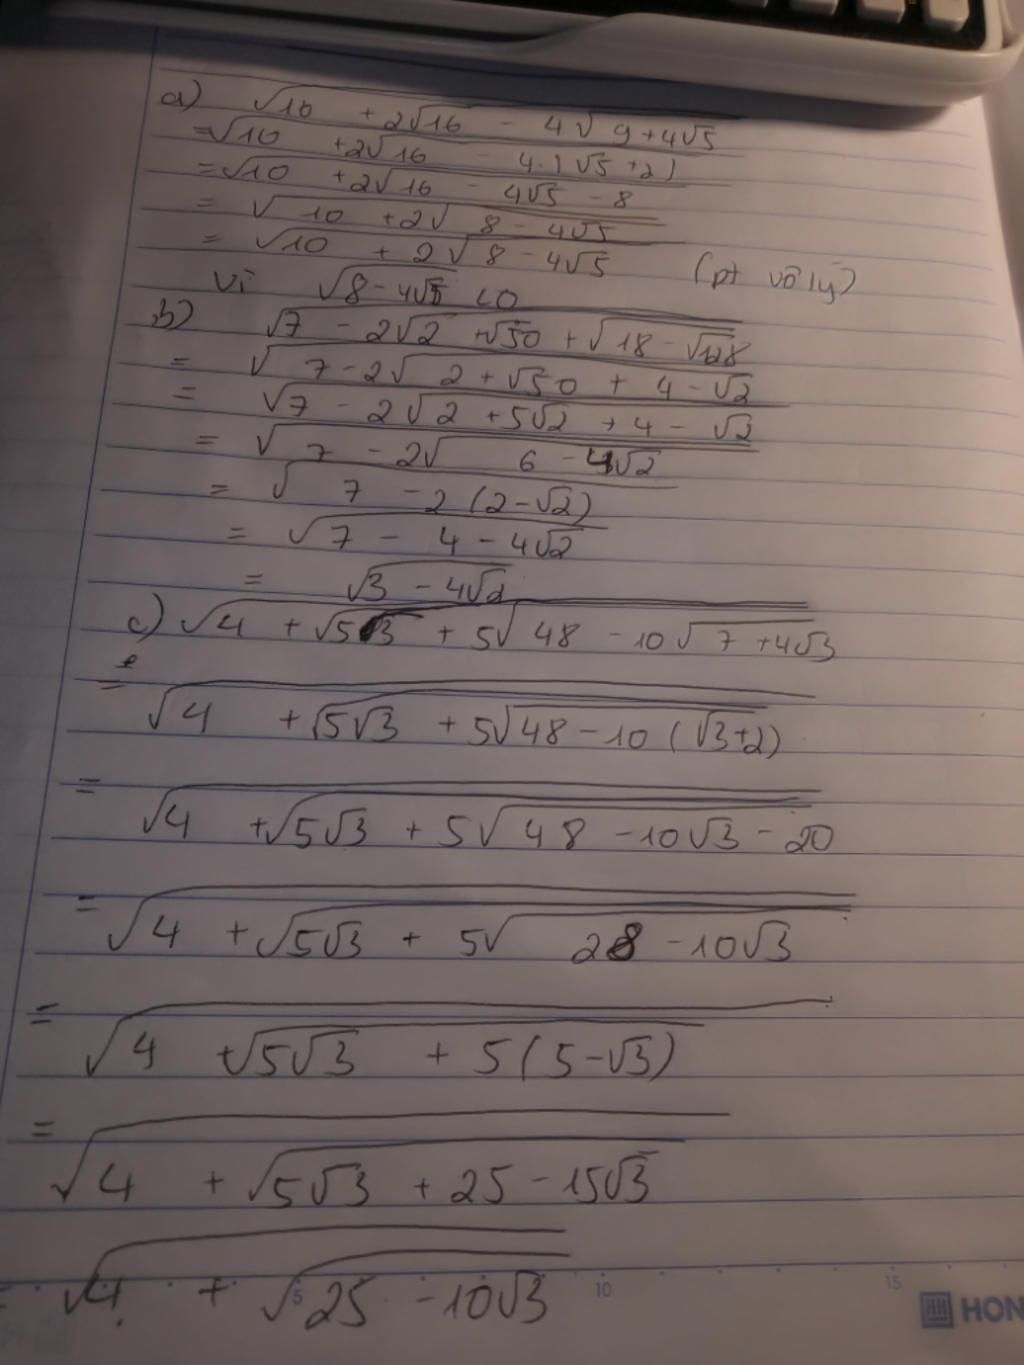 a) √10 + 2√16 - 4√9+4√5
=√10 + 2√16 - 4.(√5 +2)
=√10 + 2√16 - 4√5 - 8
= √10 + 2√8 - 4√5
= √10 + 2√8 - 4√5 (pt vô lý)
Vì √8 - 4√5 <0
b) √7 - 2√2 + √50 + √18 - √128
= √7 - 2√2 + √50 + 4 - √2
= √7 - 2√2 + 5√2 + 4 - √2
= √7 - 2√6 - 4√2
= √7 - 2(2-√2)
= √7 - 4 - 4√2
= √3 - 4√2
c) √4 + √5√3 + 5√48 - 10√7+4√3
=
√4 + √5√3 + 5√48 - 10(√3+2)
=
√4 + √5√3 + 5√48 - 10√3 - 20
=
√4 + √5√3 + 5√28 - 10√3
=
√4 + √5√3 + 5(5-√3)
=
√4 + √5√3 + 25 - 15√3
= √4 + √25 - 10√3
5 10 15
HON